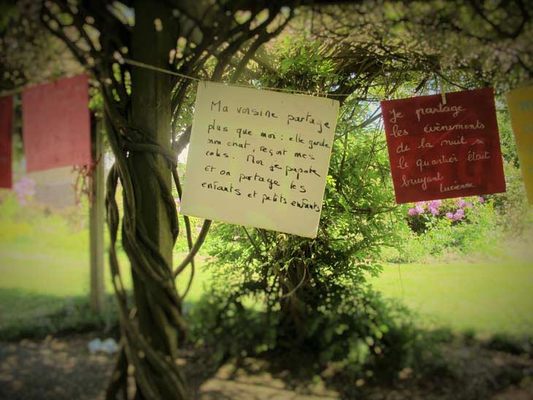 Ma voisine partage
plus que moi : elle garde
mon chat, reçoit mes
colis. Moi je papote
et on partage les
enfants et petits enfants
Je partage
les évènements
de la nuit si
le quartier était
bruyant
Lucienne